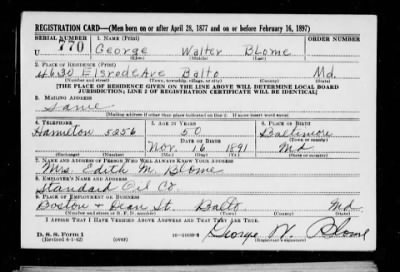 REGISTRATION CARD—(Men born on or after April 28, 1877 and on or before February 16, 1897)
SERIAL NUMBER 1. NAME (Print) ORDER NUMBER
U 770 George Walter Blome
(First) (Middle) (Last)
2. PLACE OF RESIDENCE (Print)
4630 Elsrode Ave Balto Md.
(Number and street) (Town, township, village, or city) (County) (State)
[THE PLACE OF RESIDENCE GIVEN ON THE LINE ABOVE WILL DETERMINE LOCAL BOARD
JURISDICTION; LINE 2 OF REGISTRATION CERTIFICATE WILL BE IDENTICAL]
3. MAILING ADDRESS
Same
[Mailing address if other than place indicated on line 2. If same insert word same]
4. TELEPHONE 5. AGE IN YEARS 6. PLACE OF BIRTH
Hamilton 5256 50 Baltimore
DATE OF BIRTH (Town or county)
Nov. 16 1891 Md
(Exchange) (Number) (Mo.) (Day) (Yr.) (State or country)
7. NAME AND ADDRESS OF PERSON WHO WILL ALWAYS KNOW YOUR ADDRESS
Mrs. Edith M. Blome
8. EMPLOYER'S NAME AND ADDRESS
Standard Oil Co.
9. PLACE OF EMPLOYMENT OR BUSINESS
Boston + Dean St. Balto Md
(Number and street or R. F. D. number) (Town) (County) (State)
I AFFIRM THAT I HAVE VERIFIED ABOVE ANSWERS AND THAT THEY ARE TRUE.
D. S. S. Form 1
(Revised 4-1-42) (over) George W. Blome
(Registrant's signature)